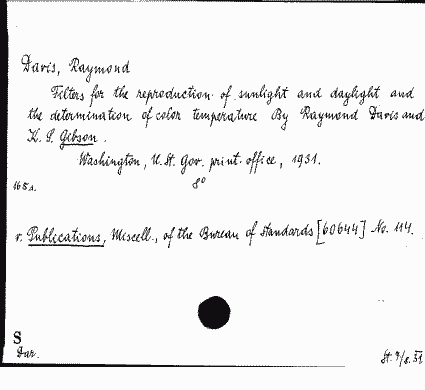 Davis, Raymond
Filters for the reproduction of sunlight and daylight and
the determination of color temperature By Raymond Davis and
K. S. Gibson.
Washington, U. St. Gov. print. office, 1931.
165 s. 8°
v. Publications, Miscell., of the Bureau of Standards [60644] No. 114.
S
Dav.
St. 9/8. 31